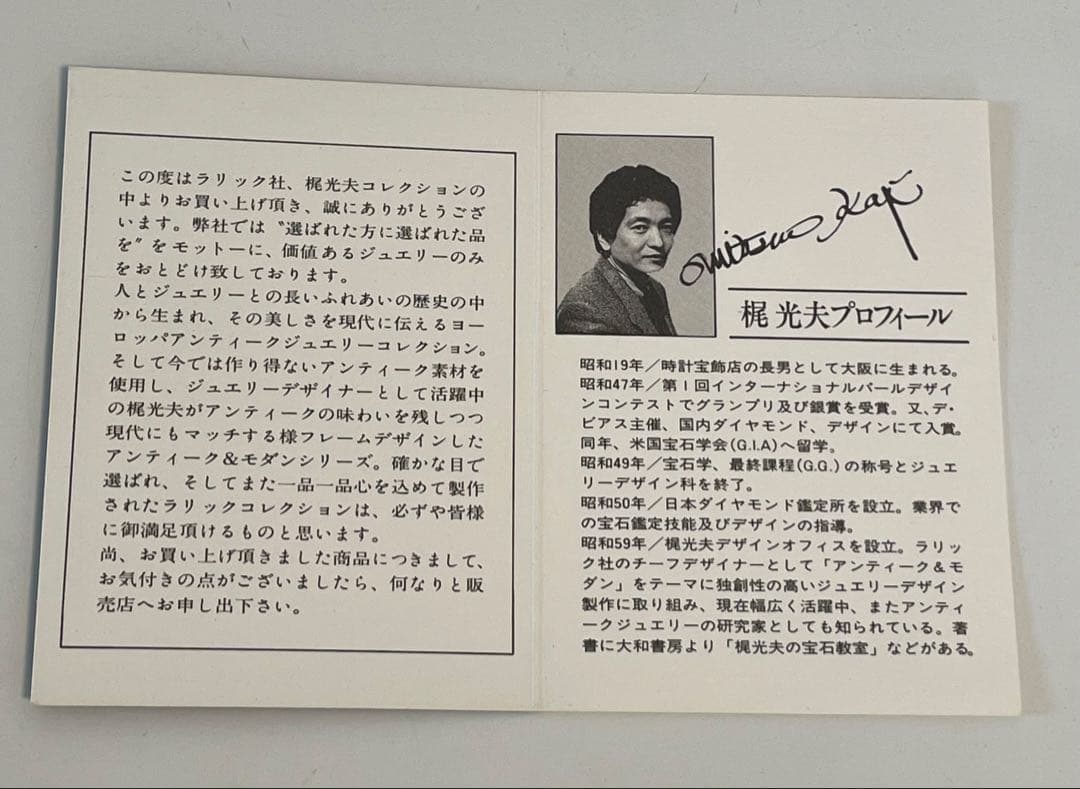 この度はラリック社、梶光夫コレクションの
中よりお買い上げ頂き、誠にありがとうござ
います。弊社では〝選ばれた方に選ばれた品
を〟をモットーに、価値あるジュエリーのみ
をおとどけ致しております。
人とジュエリーとの長いふれあいの歴史の中
から生まれ、その美しさを現代に伝えるヨー
ロッパアンティークジュエリーコレクション。
そして今では作り得ないアンティーク素材を
使用し、ジュエリーデザイナーとして活躍中
の梶光夫がアンティークの味わいを残しつつ
現代にもマッチする様フレームデザインした
アンティーク&モダンシリーズ。確かな目で
選ばれ、そしてまた一品一品心を込めて製作
されたラリックコレクションは、必ずや皆様
に御満足頂けるものと思います。
尚、お買い上げ頂きました商品につきまして、
お気付きの点がございましたら、何なりと販
売店へお申し出下さい。
Mitsuo Kaji
梶 光夫プロフィール
昭和19年/時計宝飾店の長男として大阪に生まれる。
昭和47年/第1回インターナショナルパールデザイ
ンコンテストでグランプリ及び銀賞を受賞。又、デ・
ビアス主催、国内ダイヤモンド、デザインにて入賞。
同年、米国宝石学会(G.I.A)へ留学。
昭和49年/宝石学、最終課程(G.G.)の称号とジュエ
リーデザイン科を終了。
昭和50年/日本ダイヤモンド鑑定所を設立。業界で
の宝石鑑定技能及びデザインの指導。
昭和59年/梶光夫デザインオフィスを設立。ラリッ
ク社のチーフデザイナーとして「アンティーク&モ
ダン」をテーマに独創性の高いジュエリーデザイン
製作に取り組み、現在幅広く活躍中、またアンティ
ークジュエリーの研究家としても知られている。著
書に大和書房より「梶光夫の宝石教室」などがある。